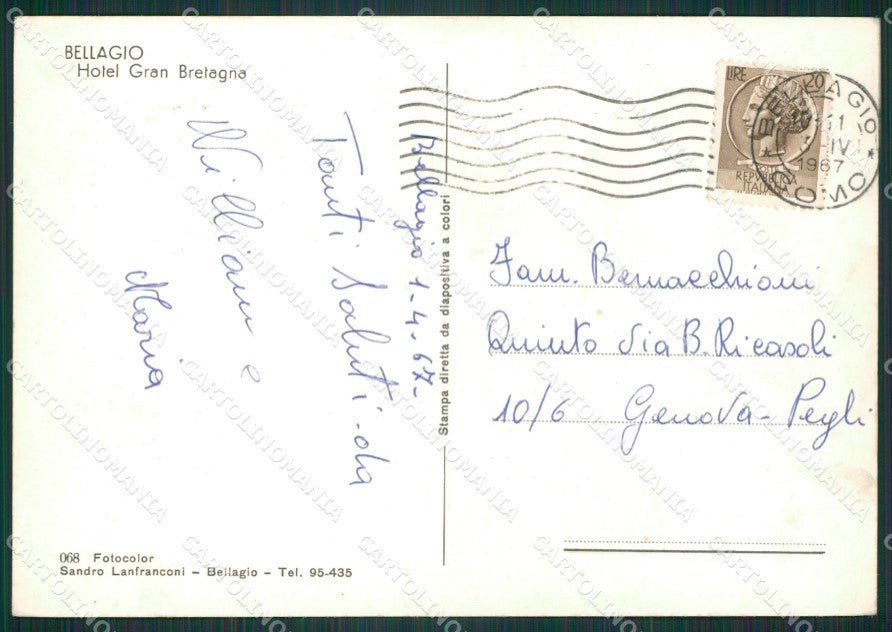 BELLAGIO
Hotel Gran Bretagna
Bellagio 1-4-67-
Tanti Saluti-da
William e
Maria
068 Fotocolor
Sandro Lanfranconi – Bellagio – Tel. 95-435
Stampa diretta da diapositiva a colori
LIRE 20
REPUBBLICA
ITALIANA
BELLAGIO
11
IV
1967
COMO
Fam. Bernacchioni
Quinto Via B. Ricasoli
10/6 Genova-Pegli
CARTOLINOMANIA